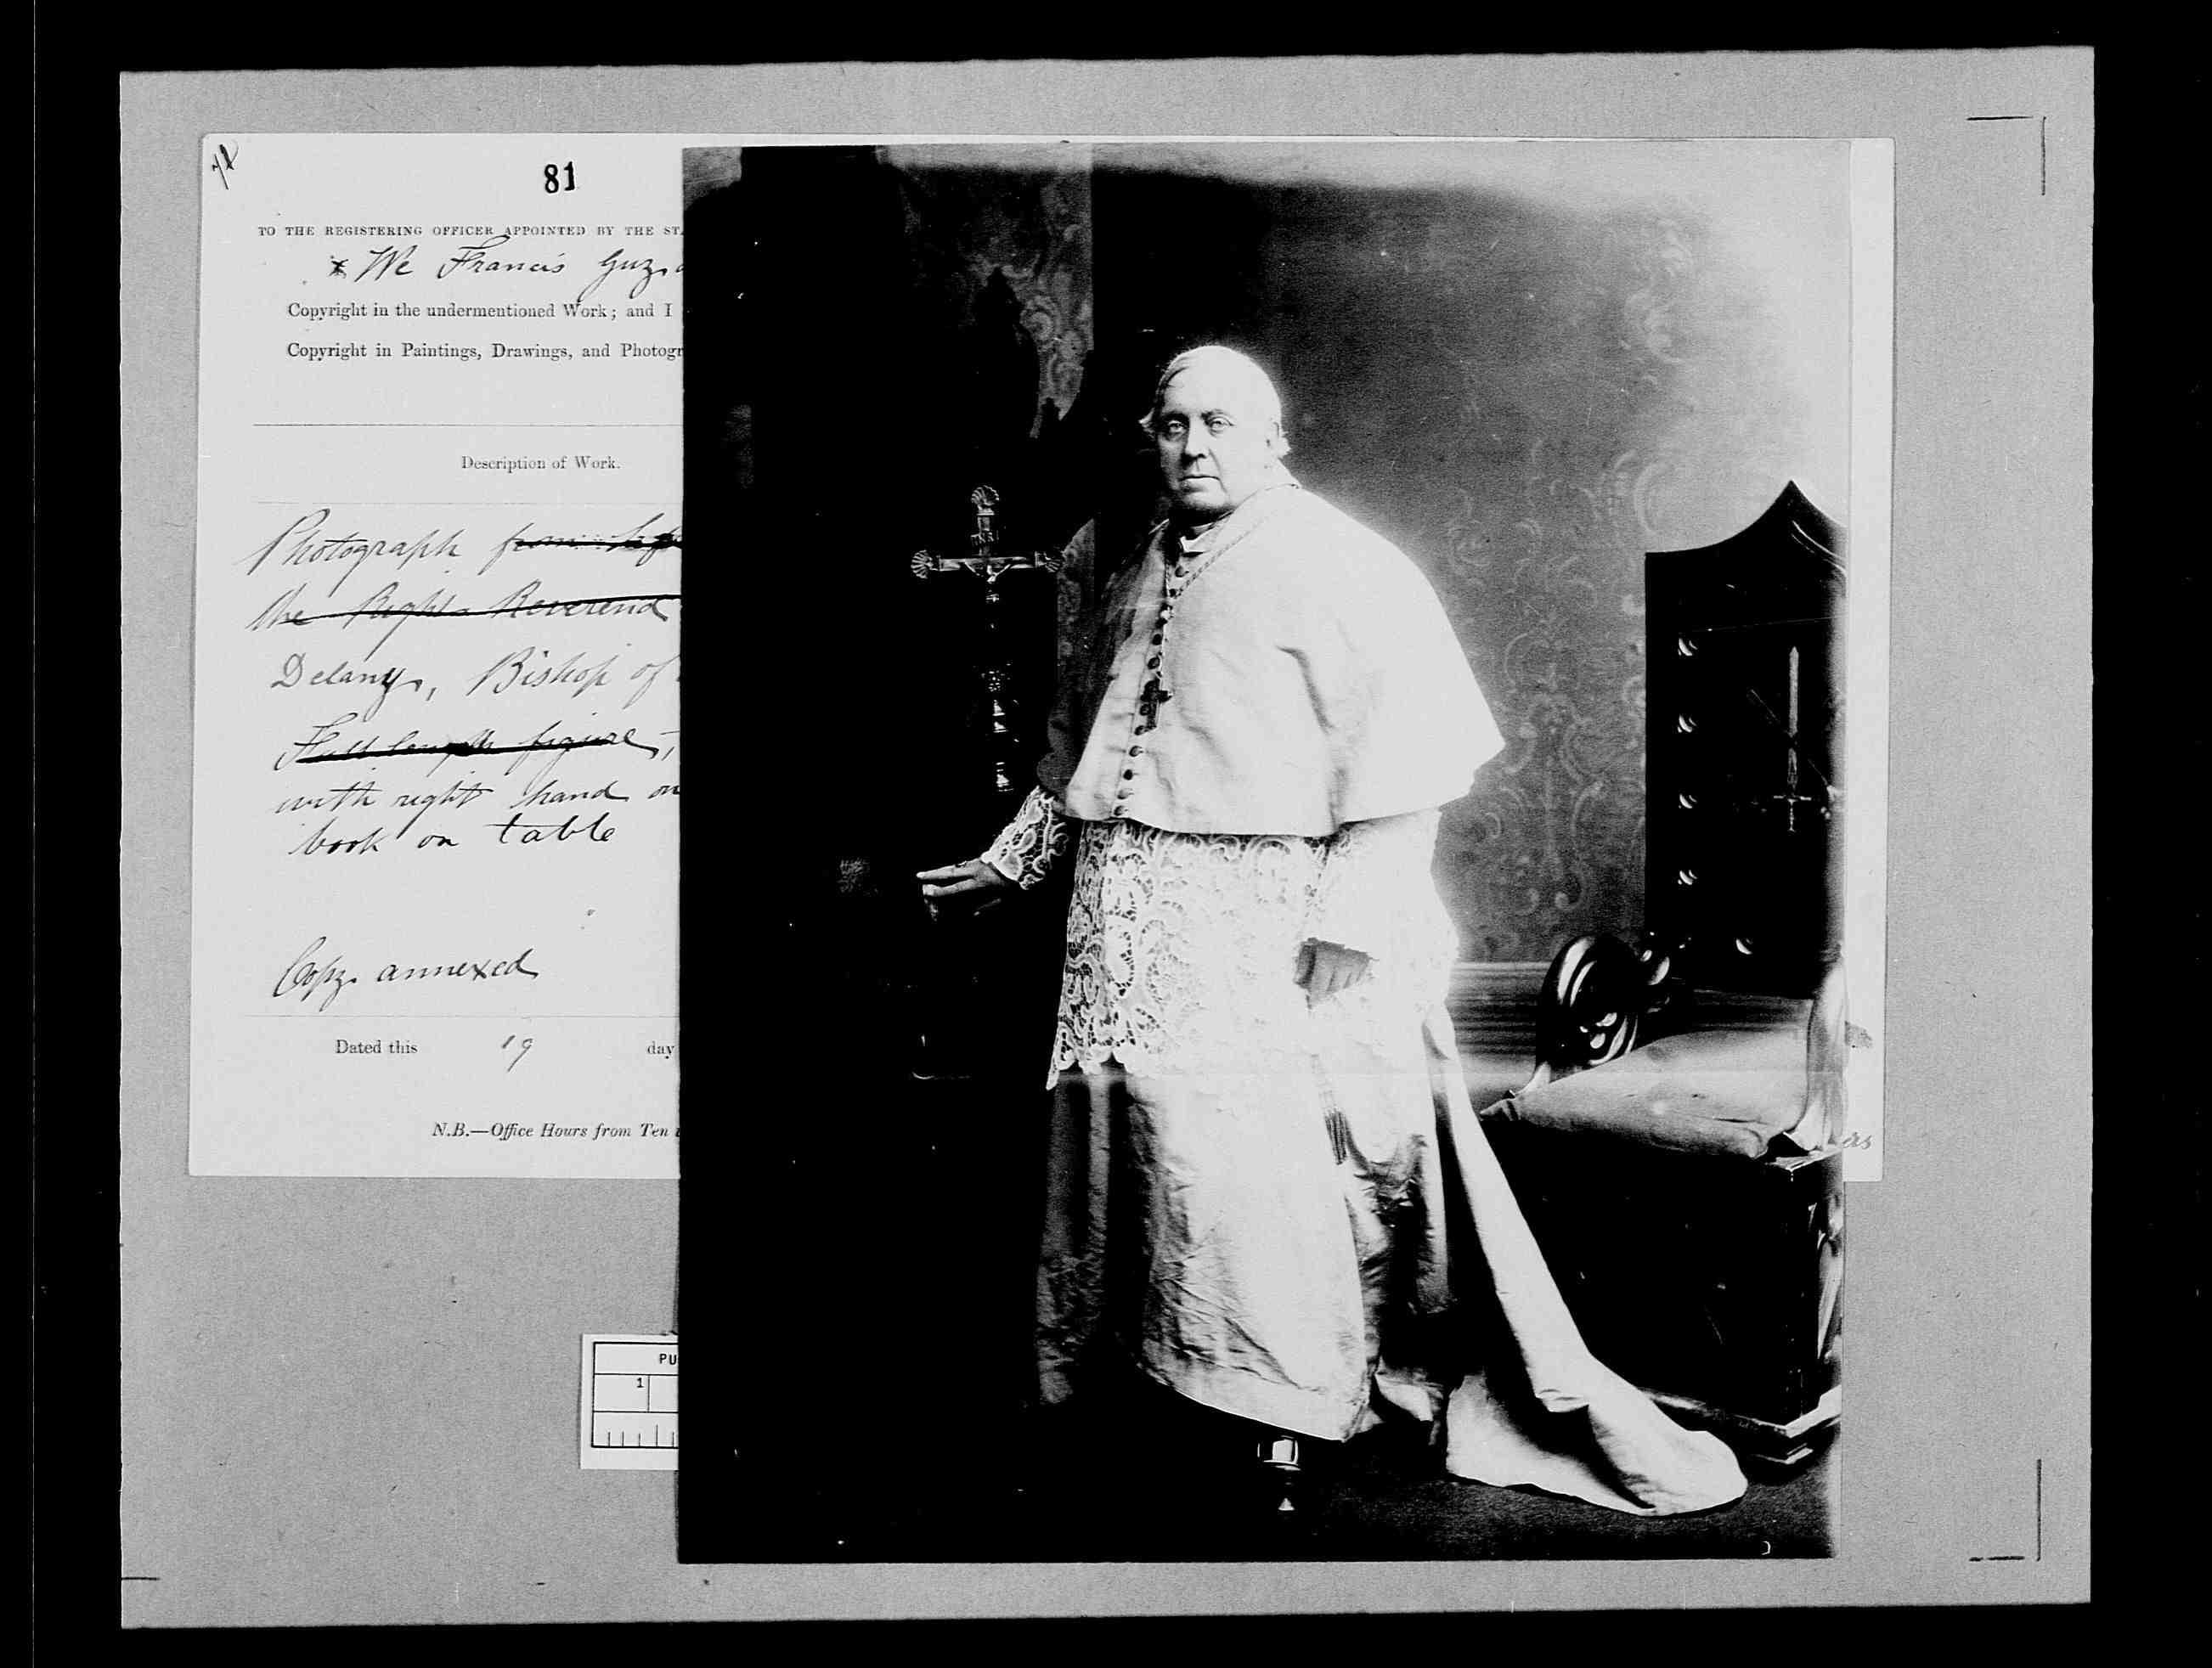 81
TO THE REGISTERING OFFICER APPOINTED BY THE ST
x We Francis Guy
Copyright in the undermentioned Work; and I
Copyright in Paintings, Drawings, and Photogr
Description of Work.
Photograph from Life
the Right Reverend
Delany, Bishop of
Full length figure,
with right hand on
book on table
Copy annexed
Dated this 19 day
N.B.—Office Hours from Ten
INRI
PU
1
as